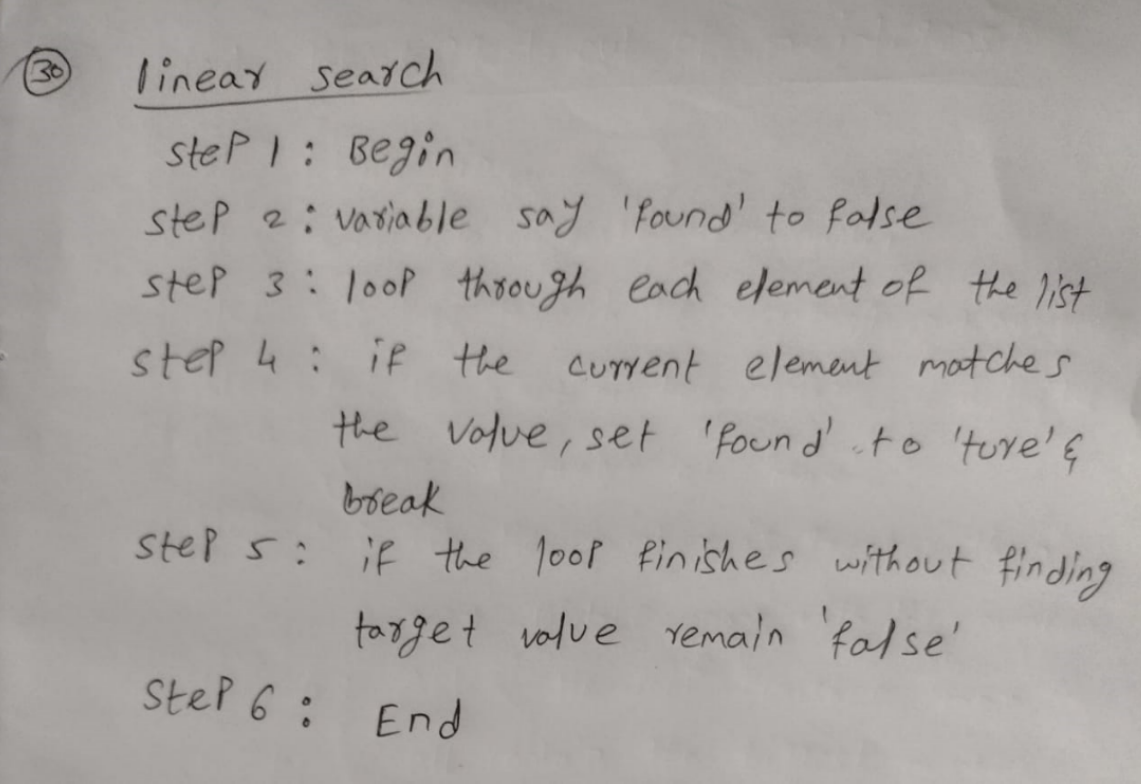 30 linear search
step 1 : Begin
step 2 : variable say 'found' to false
step 3 : loop through each element of the list
step 4 : if the current element matches
the value, set 'found' to 'ture' &
break
step 5 : if the loop finishes without finding
target value remain 'false'
step 6 : End